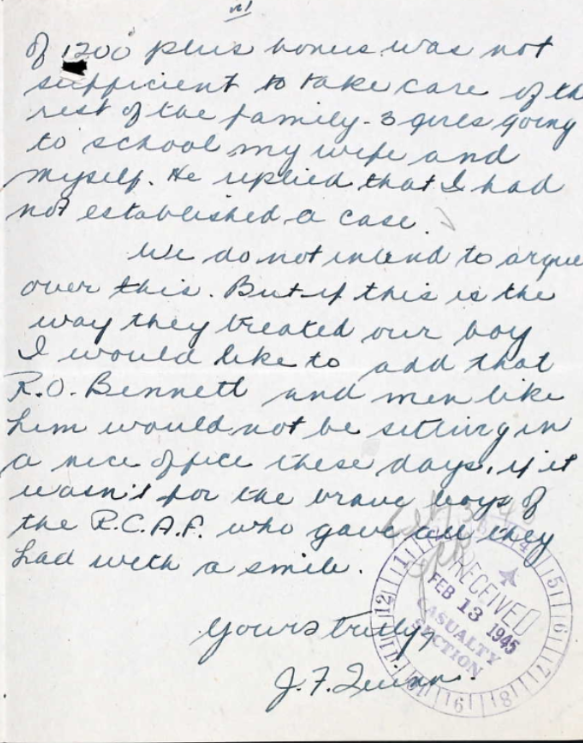 of 1200 plus bonus was not
sufficient to take care of th
rest of the family - 3 girls going
to school my wife and
myself. He replied that I had
not established a case.
We do not intend to argue
over this. But if this is the
way they treated our boy
I would like to add that
R.O. Bennett and men like
him would not be sitting in
a nice office these days, if it
wasn't for the brave boys of
the R.C.A.F. who gave all they
had with a smile.
Yours truly,
J. F. Quinn.
RECEIVED
FEB 13 1945
CASUALTY
SECTION